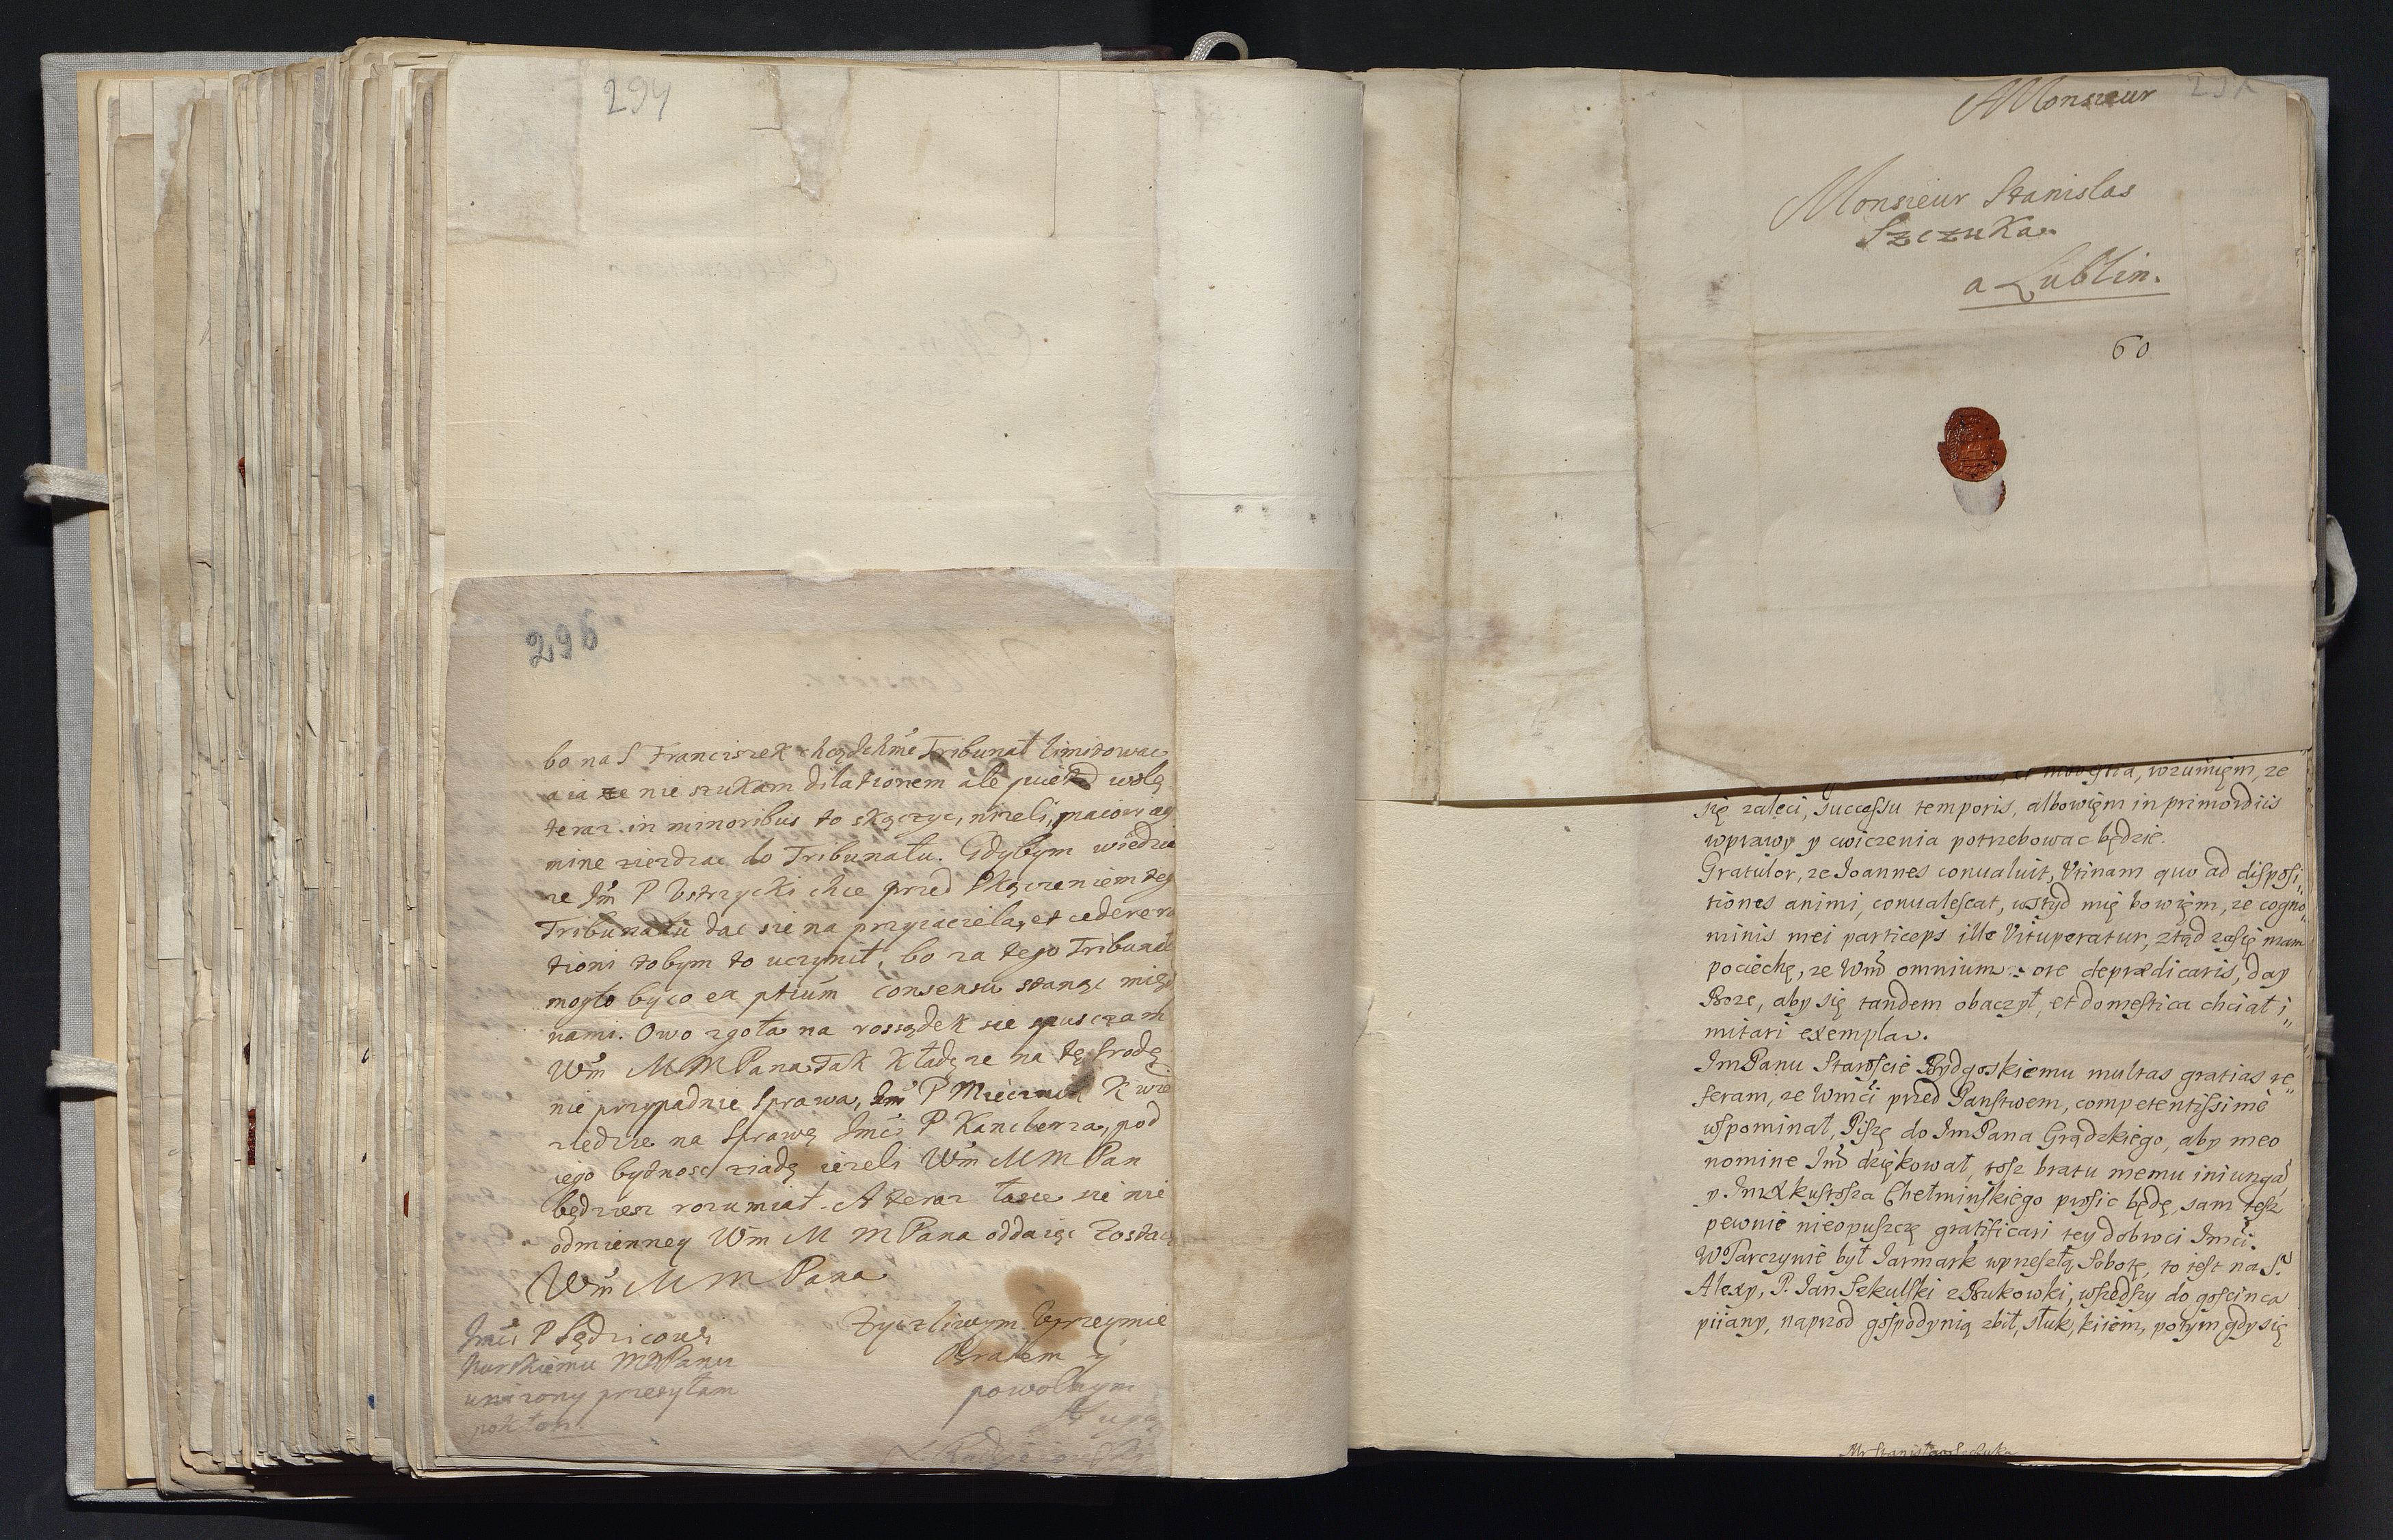 294
296
bo na S Franciszek chcą Ichmć Tribunał limitować
a ia ze nie szukam dilationem ale wolę
teraz in minoribus to skączyc, niżeli
mine ziezdzac do Tribunału. Gdybym wiedzia
ze Im P Ustrzycki chce przed skączeniem teg
Tribunału dac sie na przyiaciela, et cedere
tioni tobym to uczynił, bo za tego Tribunał
mogło by co ex ptium consensu stanąc międ
nami. Owo zgoła na rossądek sie spusczam
Wm M M Pana. Tak kładę ze na tę srodę
nie przypadnie Sprawa, Im P
ziedzie na Sprawę Imci P Kanclerza, pod
iego bytnosc ziadę iezeli Wm M M Pan
będziesz rozumiał. A teraz łasce sie nie
odmienney Wm M M Pana oddaiąc zostaię
Wm M M Pana
Zyczliwym Uprzeymie
Bratem y
powolnym
Sługą
Imci P Sędzicowi
Nurskiemu M M Panu
unizony przesyłam
pokłon.
Monsieur
Monsieur Stanislas
Szczuka
a Lublin.
60
rozumięm, ze
się zaleci, successu temporis, albowięm in primordiis
wprawy y cwiczenia potrzebowac będzie.
Gratulor, ze Joannes conualuit, Vtinam quo ad disposi„
tiones animi, conualescat, wstyd mię bowięm, ze cogno„
minis mei particeps ille Vituperatur, ztąd zasię mam
pociechę, ze Wmć omnium ore deprædicaris, day
Boze, aby się tandem obaczył, et domestica chciał i„
mitari exempla.
Im Panu Staroscie Bydgoskiemu multas gratias re„
feram, ze Wmci przed Panstwem, competentissimè
wspominał, Piszę do Im Pana Grądzkiego, aby meo
nomine Imć dziękował, tosz bratu memu iniungą,
y Im X kustosza Chełminskiego prosic będę, sam tesz
pewnie nieopuszczę gratificari tey dobroci Imci.
W Parczywie był Jarmark w przeszłą Sobotę, to iest na S.
Alexy, P. Jan Szkulski z Bukowki, wszedszy do goscinca
piiany, naprzod gospodynią zbił, stuk, kiiem, potym gdy się
Mr Stanisław Szczuka